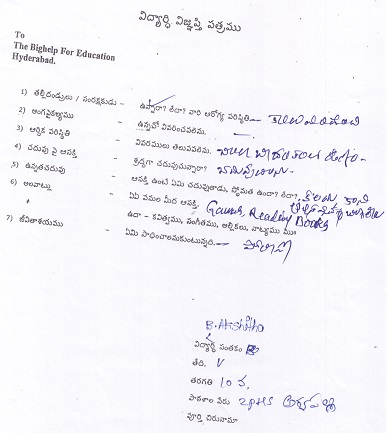 విద్యార్థి విజ్ఞప్తి పత్రము
To
The Bighelp For Education
Hyderabad.
1) తల్లిదండ్రులు / సంరక్షకుడు - ఉన్నారా? లేదా? వారి ఆరోగ్య పరిస్థితి
2) అంగవైకల్యము - ఉన్నచో వివరించవలెను.
3) ఆర్థిక పరిస్థితి - వివరములు తెలుపవలెను.
4) చదువు పై ఆసక్తి - శ్రద్ధగా చదువుచున్నారా?
5) ఉన్నతచదువు - ఆసక్తి ఉంటే ఏమి చదువుతాడు, స్తోమత ఉందా? లేదా?
6) అలవాట్లు - ఏఏ పనుల మీద ఆసక్తి. Games, Reading Books
ఉదా - కవిత్వము, సంగీతము, అల్లికలు, నాట్యము
7) జీవితాశయము - ఏమి సాధించాలనుకుంటున్నది.
B. Akshitha
విద్యార్థి సంతకం
తేది.
తరగతి 10 వ.
పాఠశాల పేరు ZPHS
పూర్తి చిరునామా